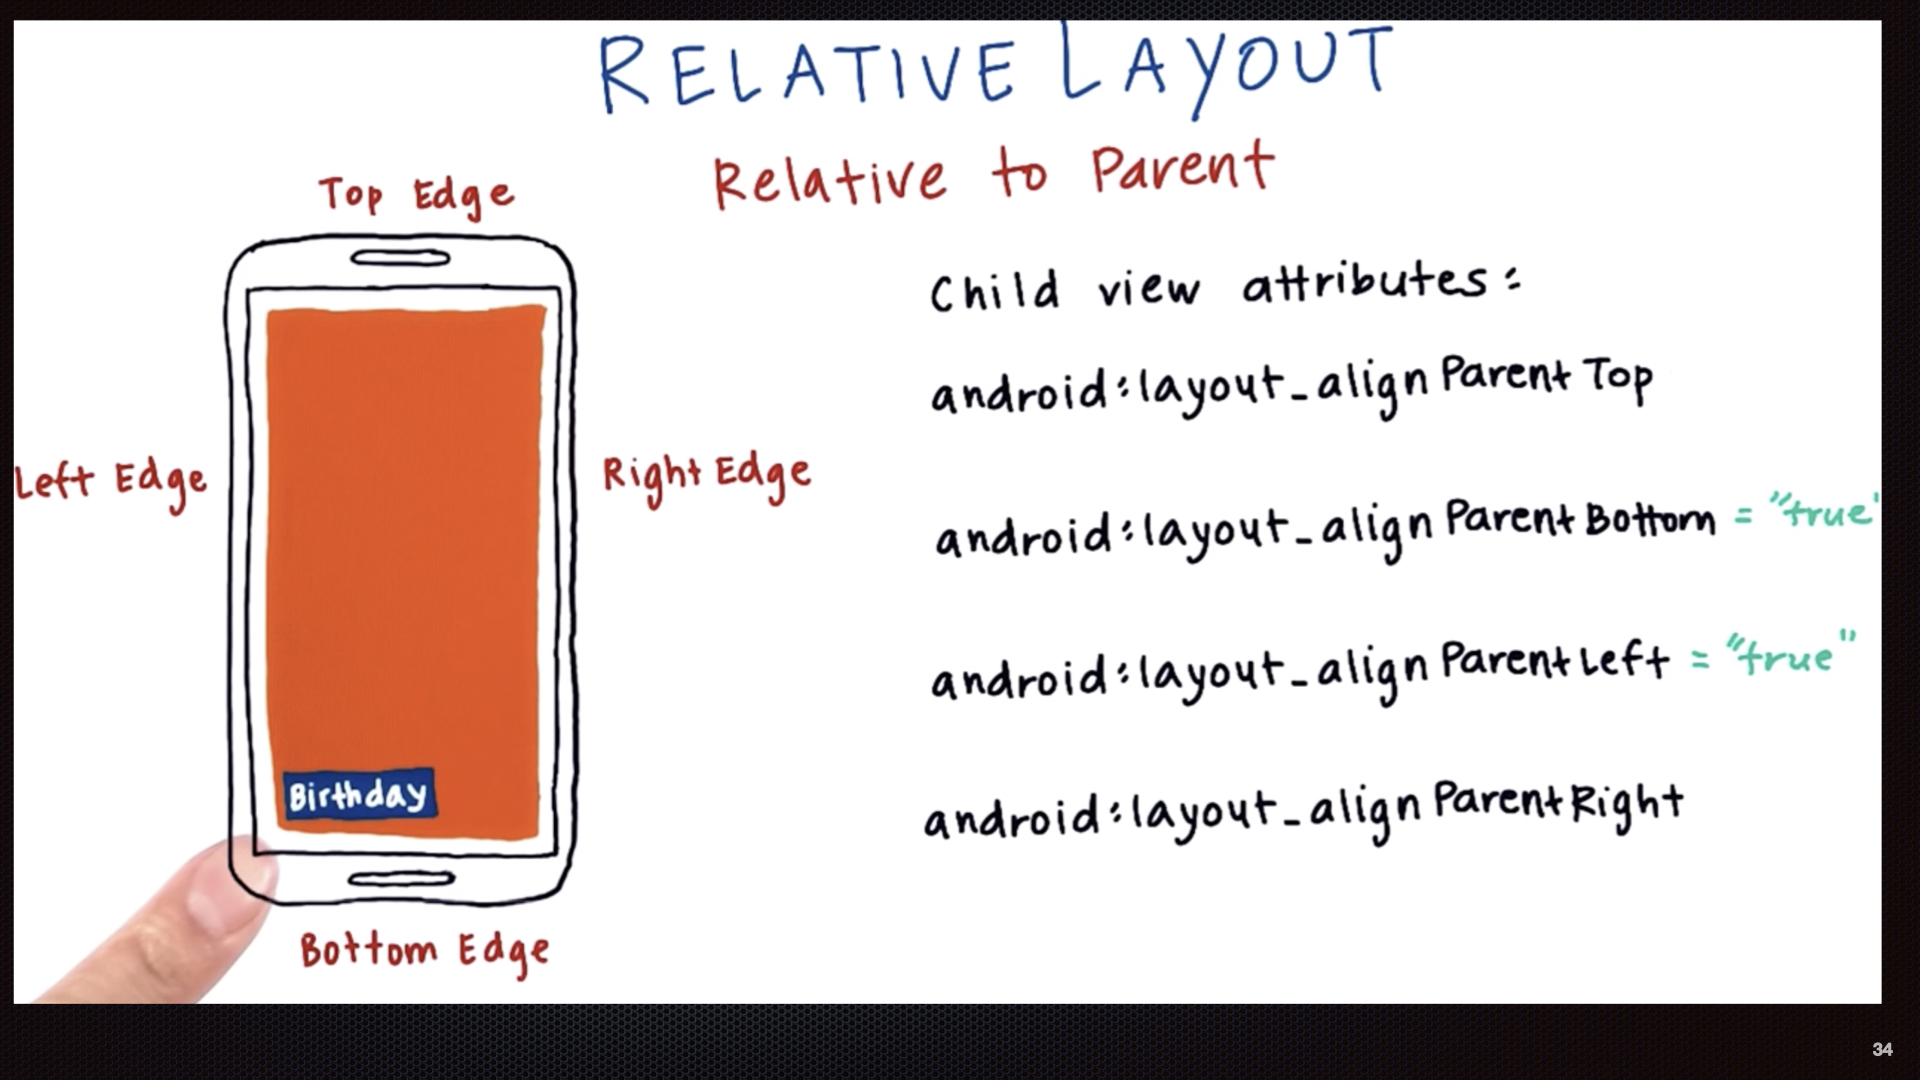 RELATIVE LAYOUT
Relative to Parent
Top Edge
Left Edge
Right Edge
Birthday
Bottom Edge
Child view attributes:
android:layout_alignParentTop
android:layout_alignParentBottom = "true"
android:layout_alignParentLeft = "true"
android:layout_alignParentRight
34